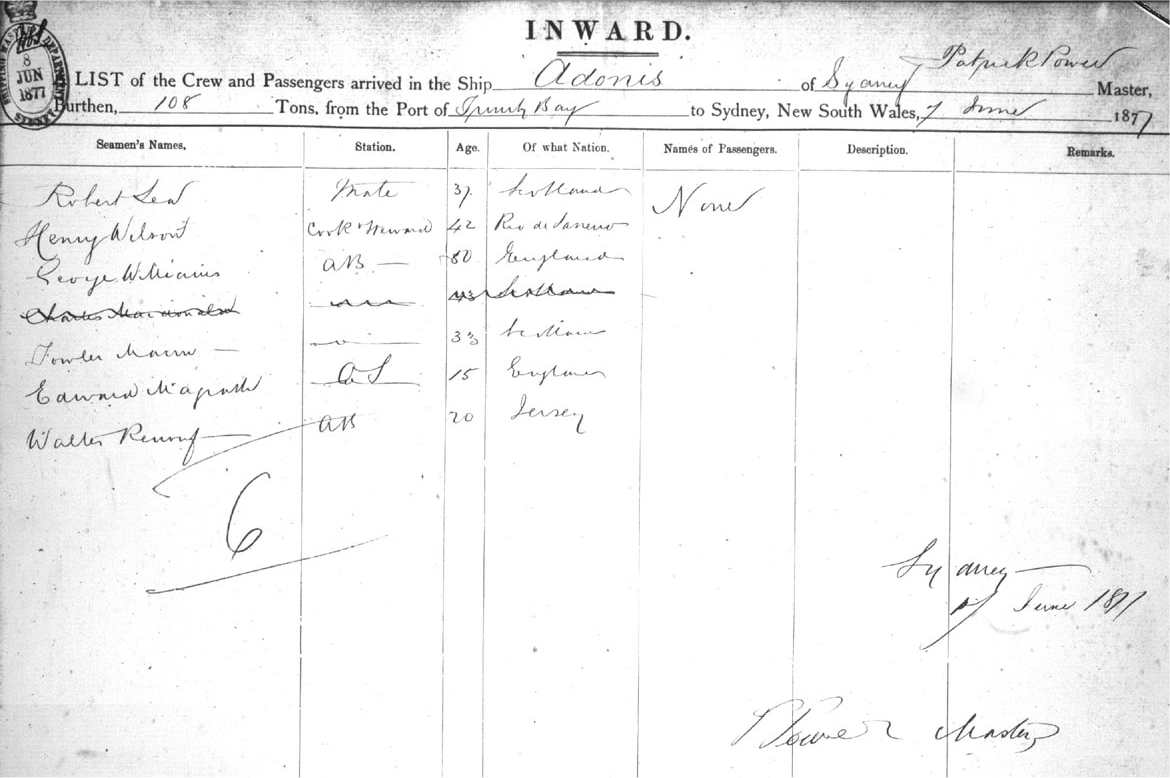 INWARD.
8
JUN
1877
SYDNEY
LIST of the Crew and Passengers arrived in the Ship Adonis of Sydney Patrick Power Master,
Burthen, 108 Tons, from the Port of Trinity Bay to Sydney, New South Wales, 7 June 1877
Seamen's Names. Station. Age. Of what Nation. Names of Passengers. Description. Remarks.
Robert Mate 37 Scotland None
Henry Wilson Cook & Steward 42 Rio de Janeiro
George Williams AB 50 England
Charles Macdonald 43 Scotland
33
Edward Magrath OS 15 England
Walter Renouf AB 20 Jersey
6
Sydney
7 June 1877
P Power Master